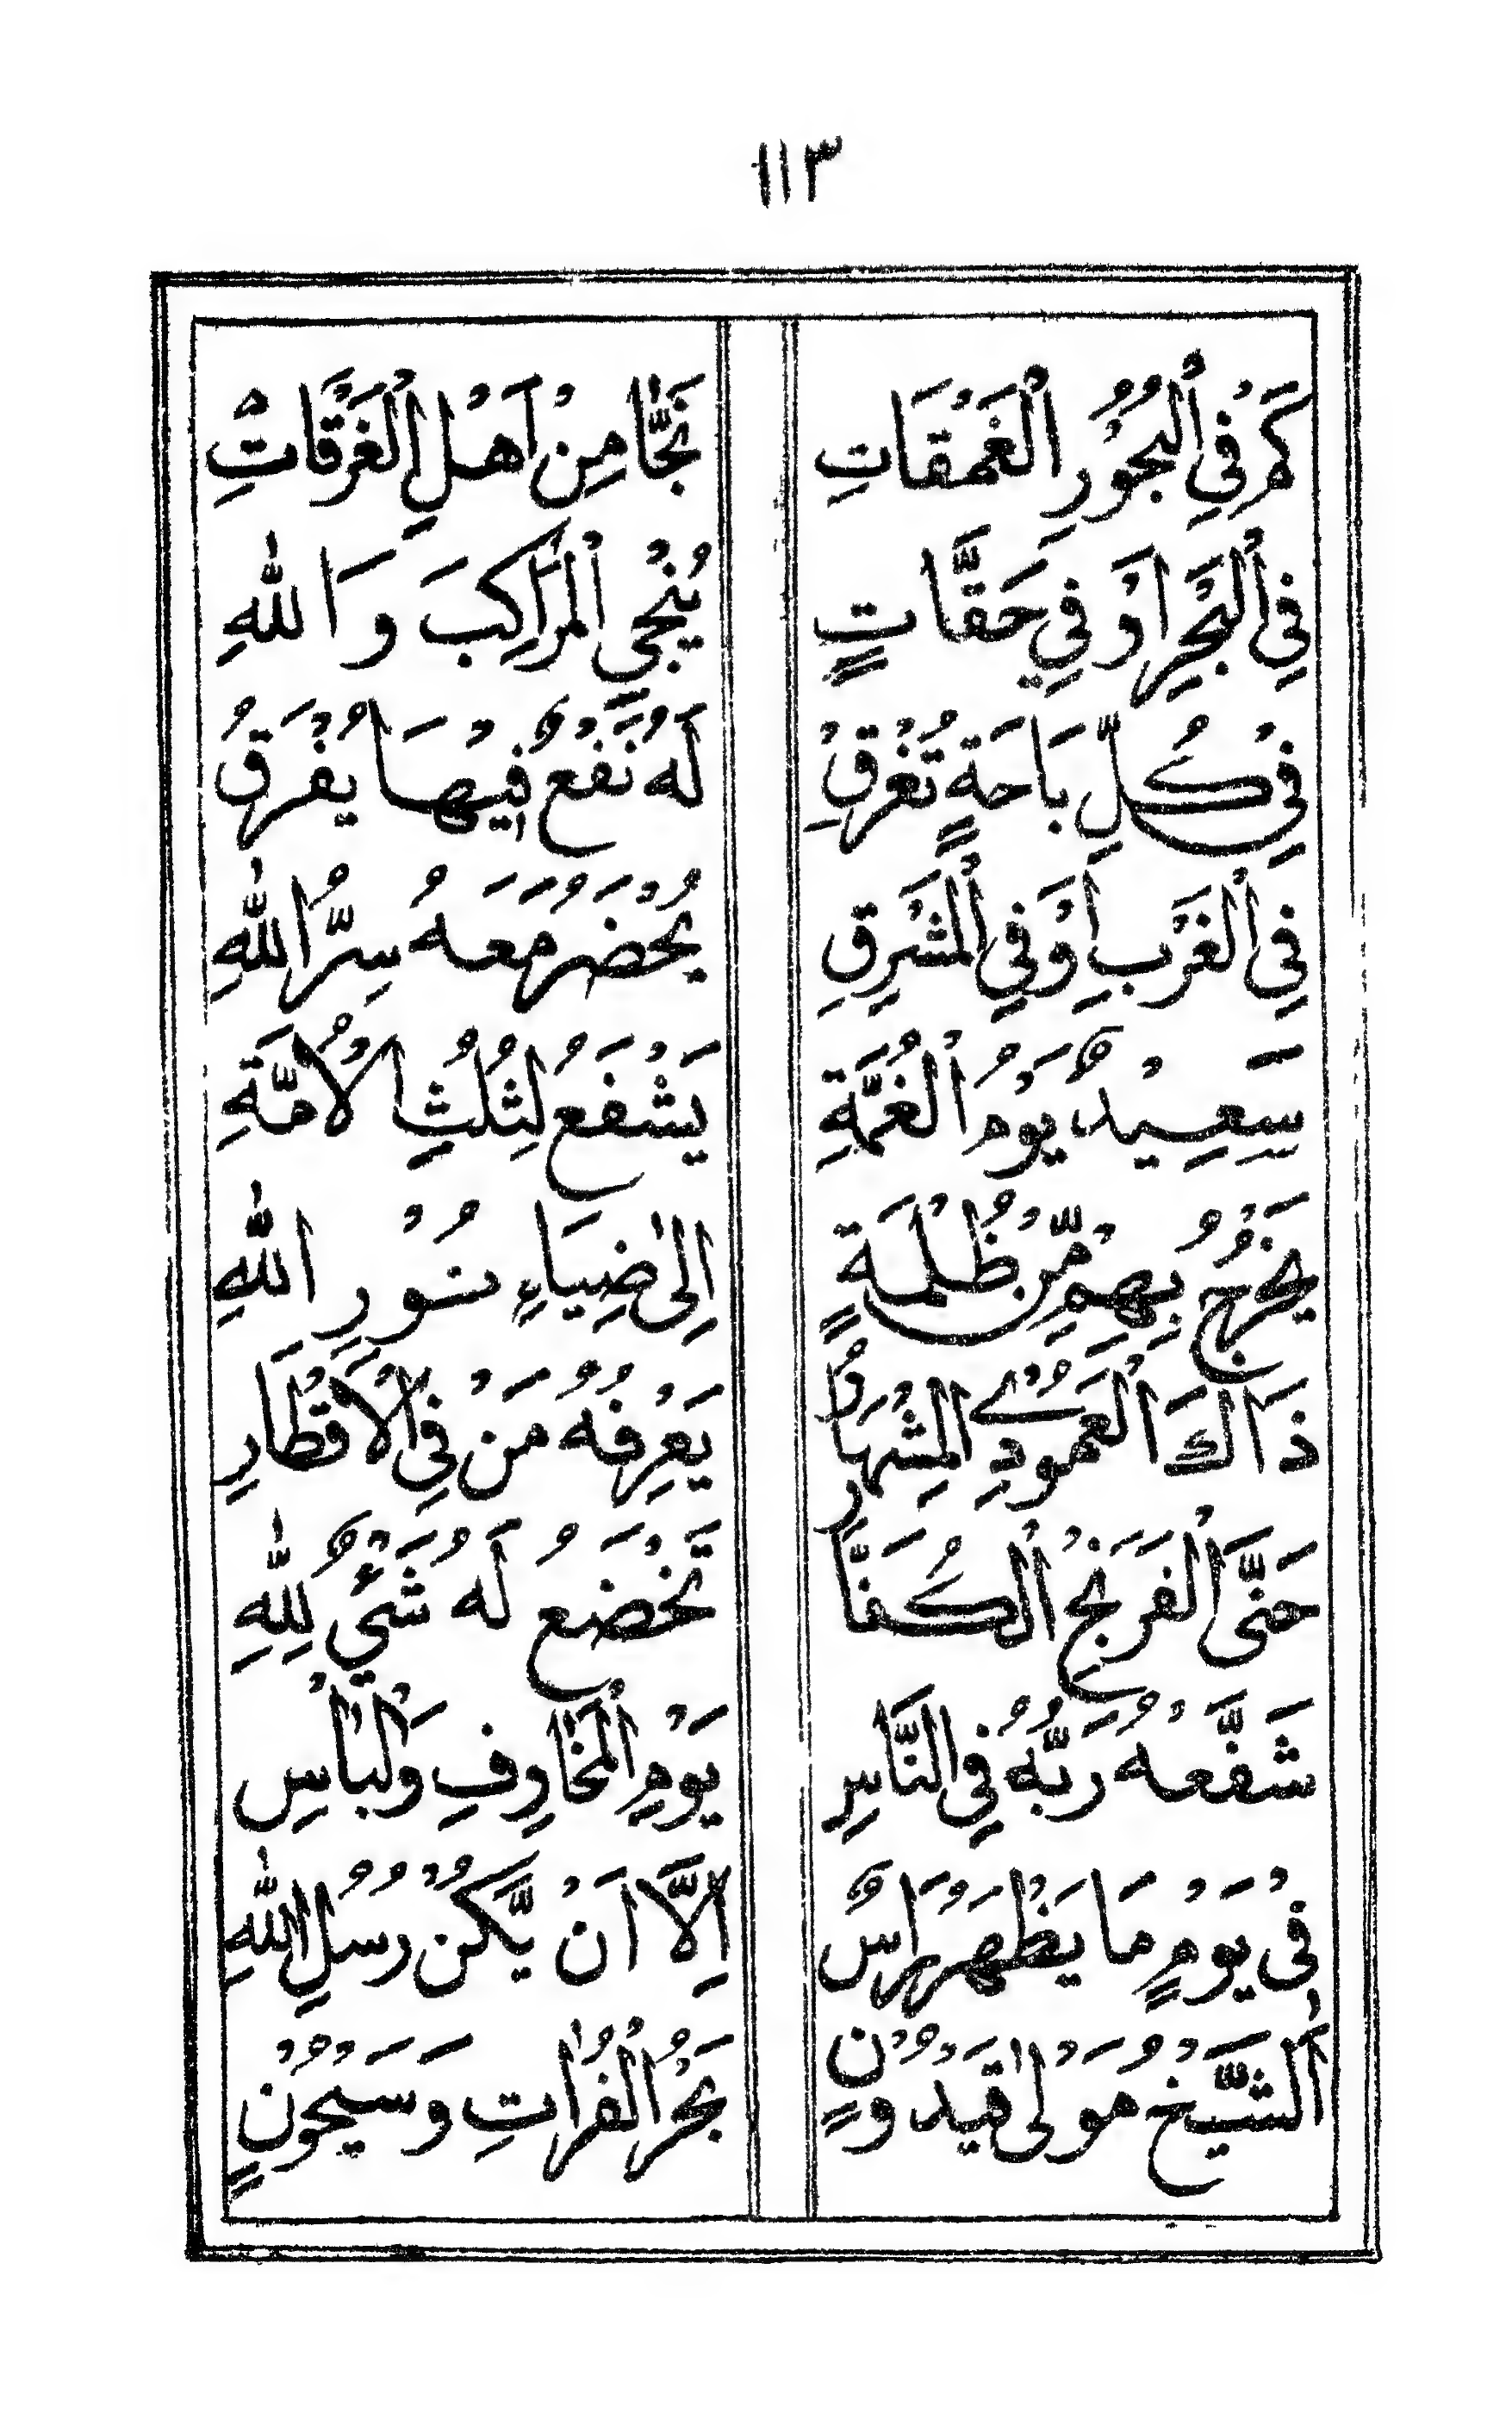 ١١٣
كَمْ فِي الْبُحُوْرِ الْغَمْقَاتِ نَجَّا مِنْ اَهْلِ الْغَرْقَاتِ
فِي الْبَحْرِ اَوْ فِي حَقَّاتٍ يُنْجِي الْمَرَاكِبَ وَاللهِ
فِيْ كُلِّ بَاحَةٍ تُغْرِقِ لَهُ نَفْعٌ فِيْهَا يُفْرَقُ
فِي الْغَرْبِ اَوْ فِي الْمَشْرِقِ يُحْضَرُ مَعَهُ سِرُّ اللهِ
سَعِيْدٌ يَوْمُ الْغُمَّةِ يَشْفَعُ لِثُلُثِ الْاُمَّةِ
يَخْرُجُ بِهِمْ مِّنْ ظُلْمَةٍ اِلٰى ضِيَاءِ نُوْرِ اللهِ
ذَاكَ الْعَمُودِيْ الْمِشْهَارُ يَعْرِفُهُ مَنْ فِي الْاَقْطَارِ
حَتَّى الْفَرَنْجُ الْكُفَّار تَخْضَعُ لَهُ شَيْءٌ لِلّٰهِ
شَفَّعَهُ رَبُّهُ فِي النَّاسِ يَوْمِ الْمَخَاوِفِ وَلْبَاْسِ
فِيْ يَوْمٍ مَا يَظْهَرُ رَاسٌ اِلَّا اَنْ يَّكُنْ رُسُلِ اللهِ
اَلشَّيْخُ مَوْلٰى قَيْدُوْنٍ بَحْرُ الْفُرَاتِ وَسَيْحُوْنٍ